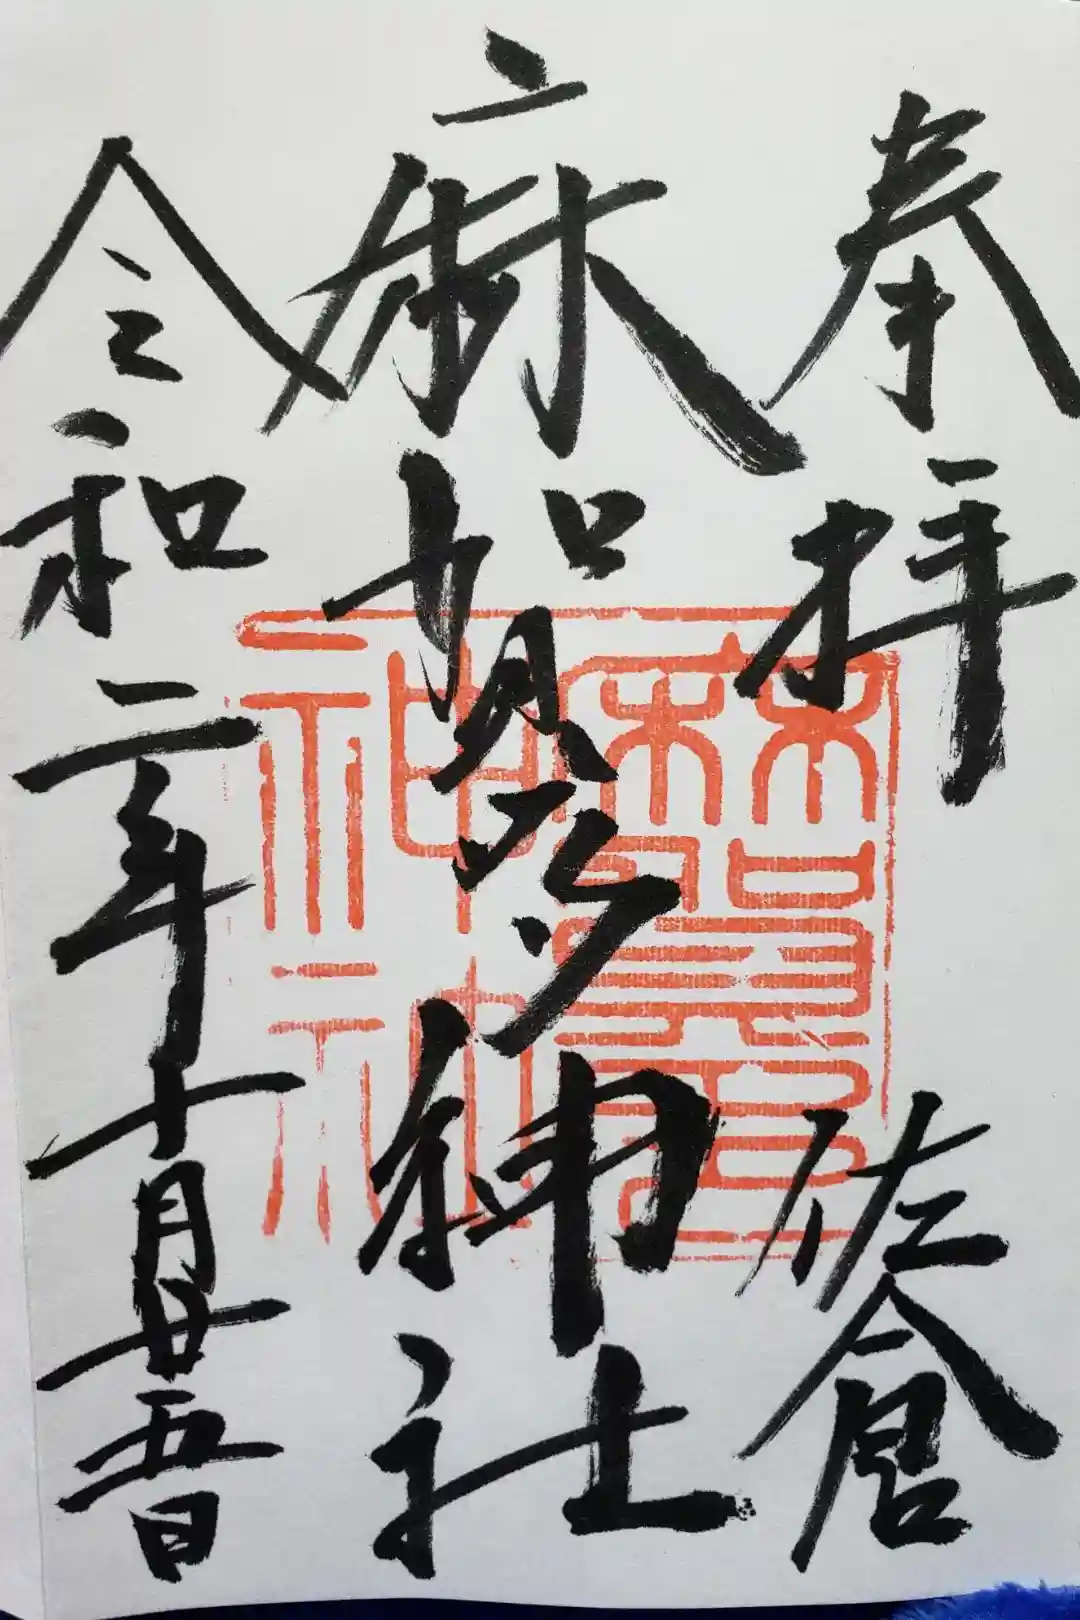 奉拝
佐倉
麻賀多神社
令和二年十月廿五日
麻賀多
神社